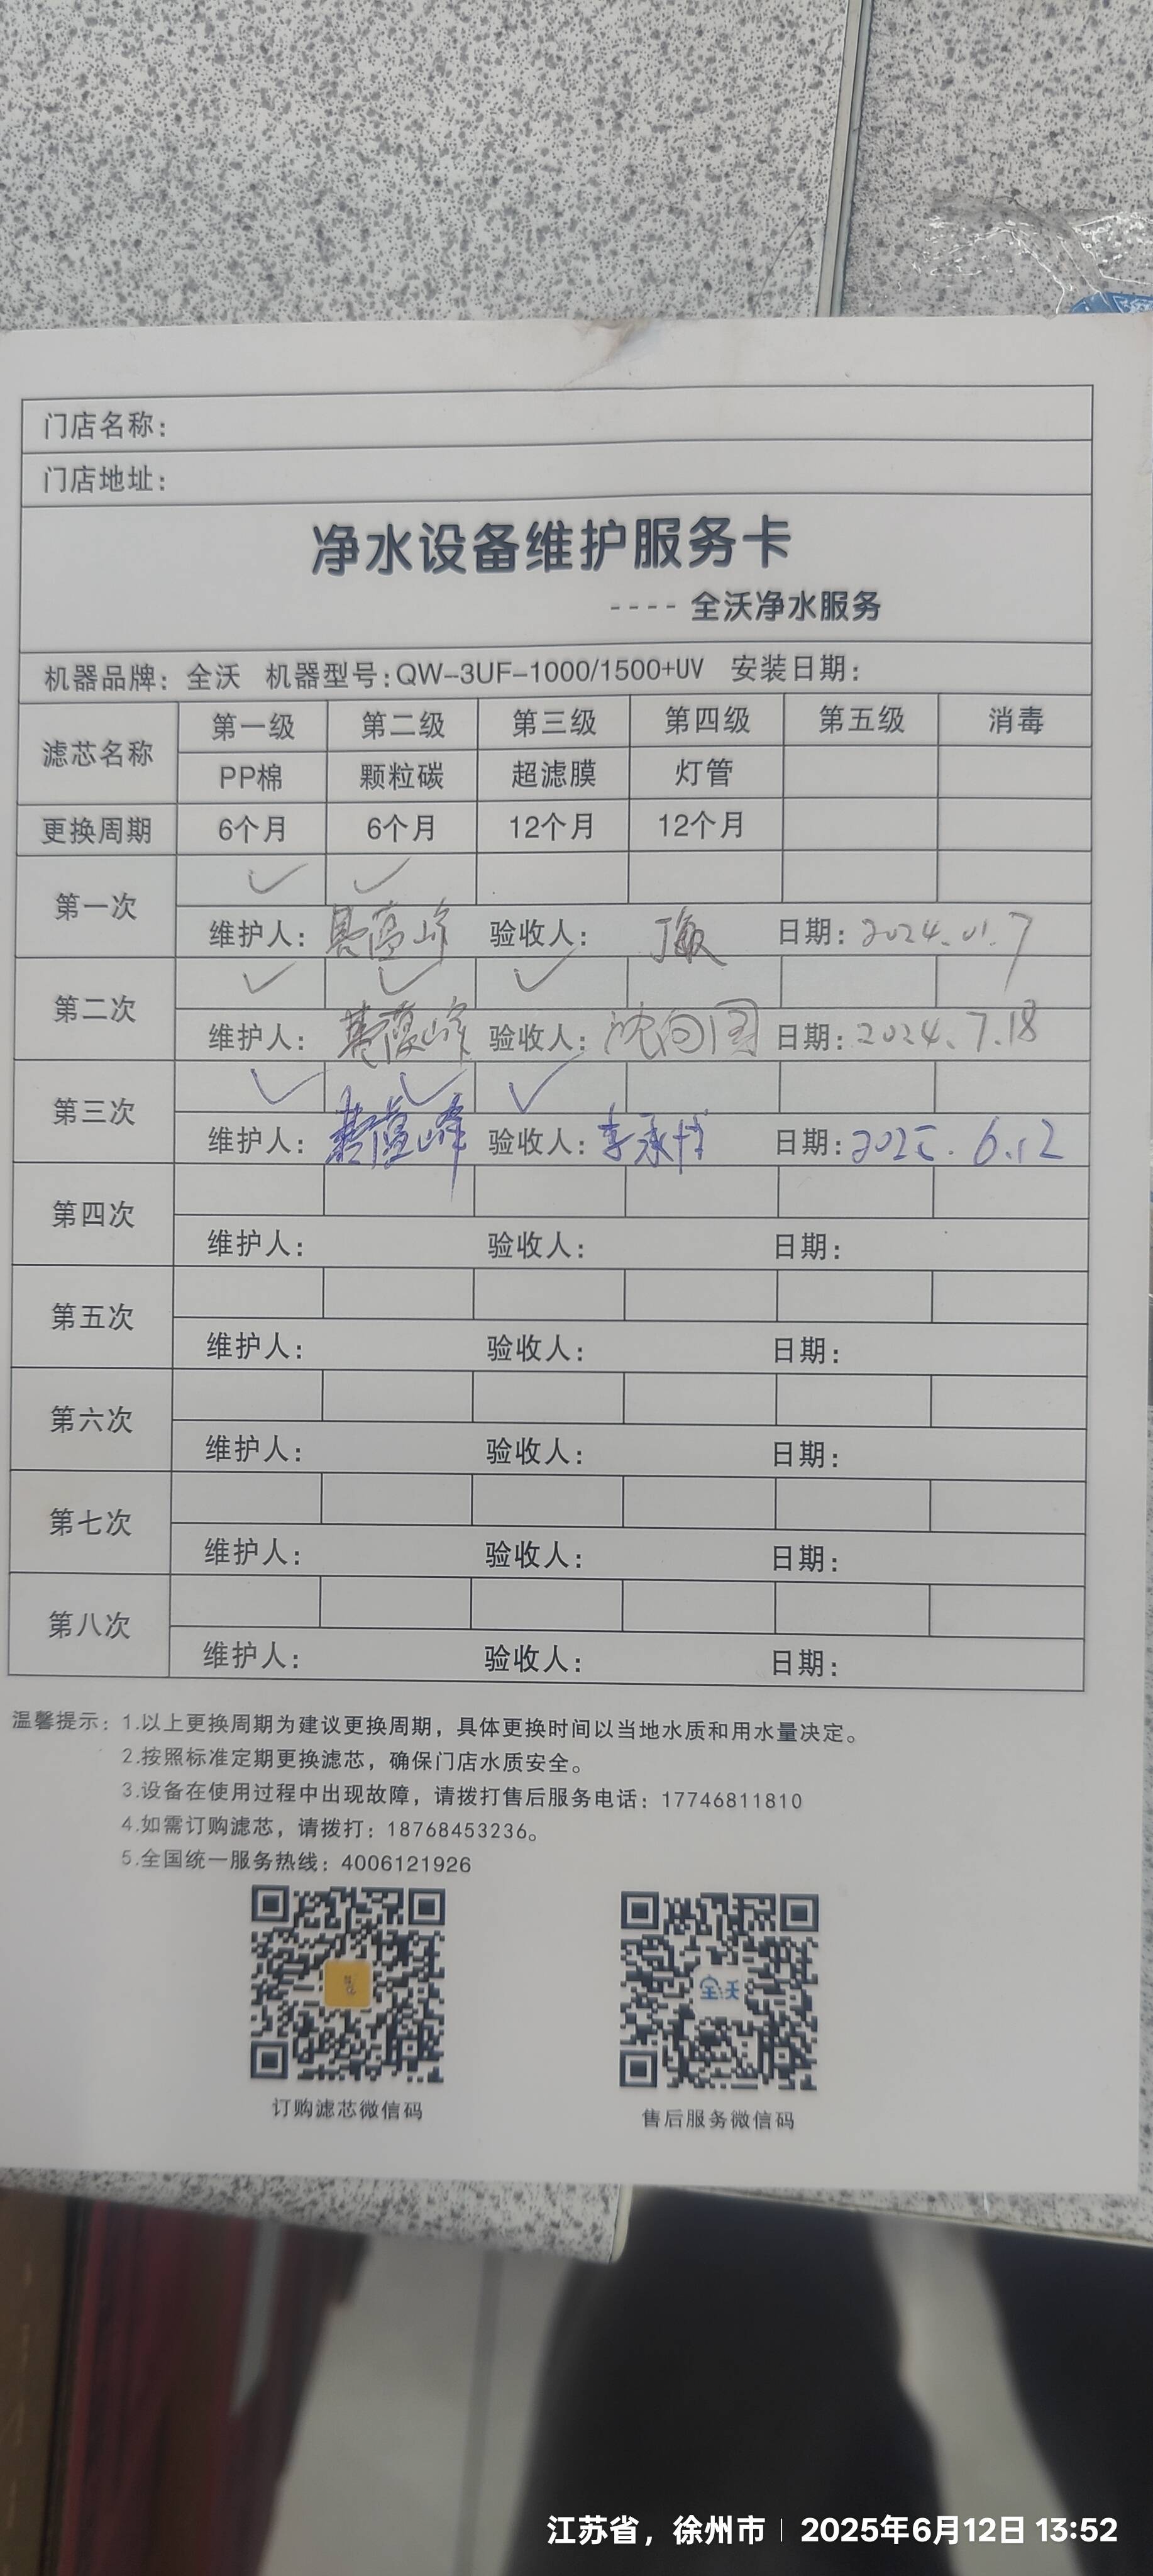 门店名称：
门店地址：
净水设备维护服务卡
---- 全沃净水服务
机器品牌：全沃 机器型号:QW-3UF-1000/1500+UV 安装日期：
滤芯名称 第一级 第二级 第三级 第四级 第五级 消毒
PP棉 颗粒碳 超滤膜 灯管
更换周期 6个月 6个月 12个月 12个月
第一次 ✓ ✓
维护人： 验收人： 丁敏 日期：2024.01.7
第二次 ✓ ✓ ✓
维护人： 验收人：沈向国 日期：2024.7.18
第三次 ✓ ✓ ✓
维护人： 验收人：李承博 日期：2025.6.12
第四次
维护人： 验收人： 日期：
第五次
维护人： 验收人： 日期：
第六次
维护人： 验收人： 日期：
第七次
维护人： 验收人： 日期：
第八次
维护人： 验收人： 日期：
温馨提示：1.以上更换周期为建议更换周期，具体更换时间以当地水质和用水量决定。
2.按照标准定期更换滤芯，确保门店水质安全。
3.设备在使用过程中出现故障，请拨打售后服务电话：17746811810
4.如需订购滤芯，请拨打：18768453236。
5.全国统一服务热线：4006121926
全沃
订购滤芯微信码 售后服务微信码
江苏省，徐州市 | 2025年6月12日 13:52